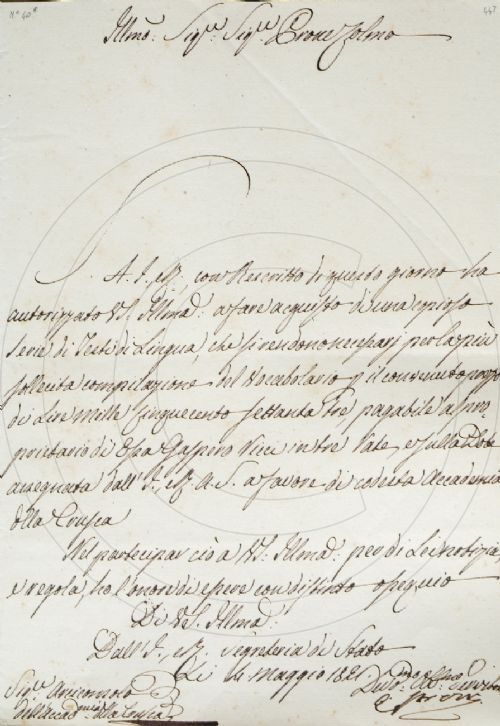 N.° 40.
447
Illmo: Sig.re Sig.re Prone Colmo
S. A. I., e R. con Rescritto di questo giorno ha
autorizzato VS. Illma: a fare acquisto di una copiosa
serie di Testi di Lingua, che si rendono necessarj per la più
sollecita compilazione del Vocabolario p il convenuto prezzo
di Lire mille cinquecento settanta tre, pagabile al pro,
prietario di essa Gaspero Ricci in tre Rate, e sulla Dote
assegnata dall' I., e R. A. S. a favore di codesta Accademia
della Crusca
Nel partecipar ciò a VS. Illma: per di Lei notizia,
e regola, ho l'onore di essere con distinto ossequio
Di VS. Illma:
Dall' I., e R. Segreteria di Stato
Li 14 Maggio 1821.
Sig.re Arciconsolo
dell'Accad.mia della Crusca